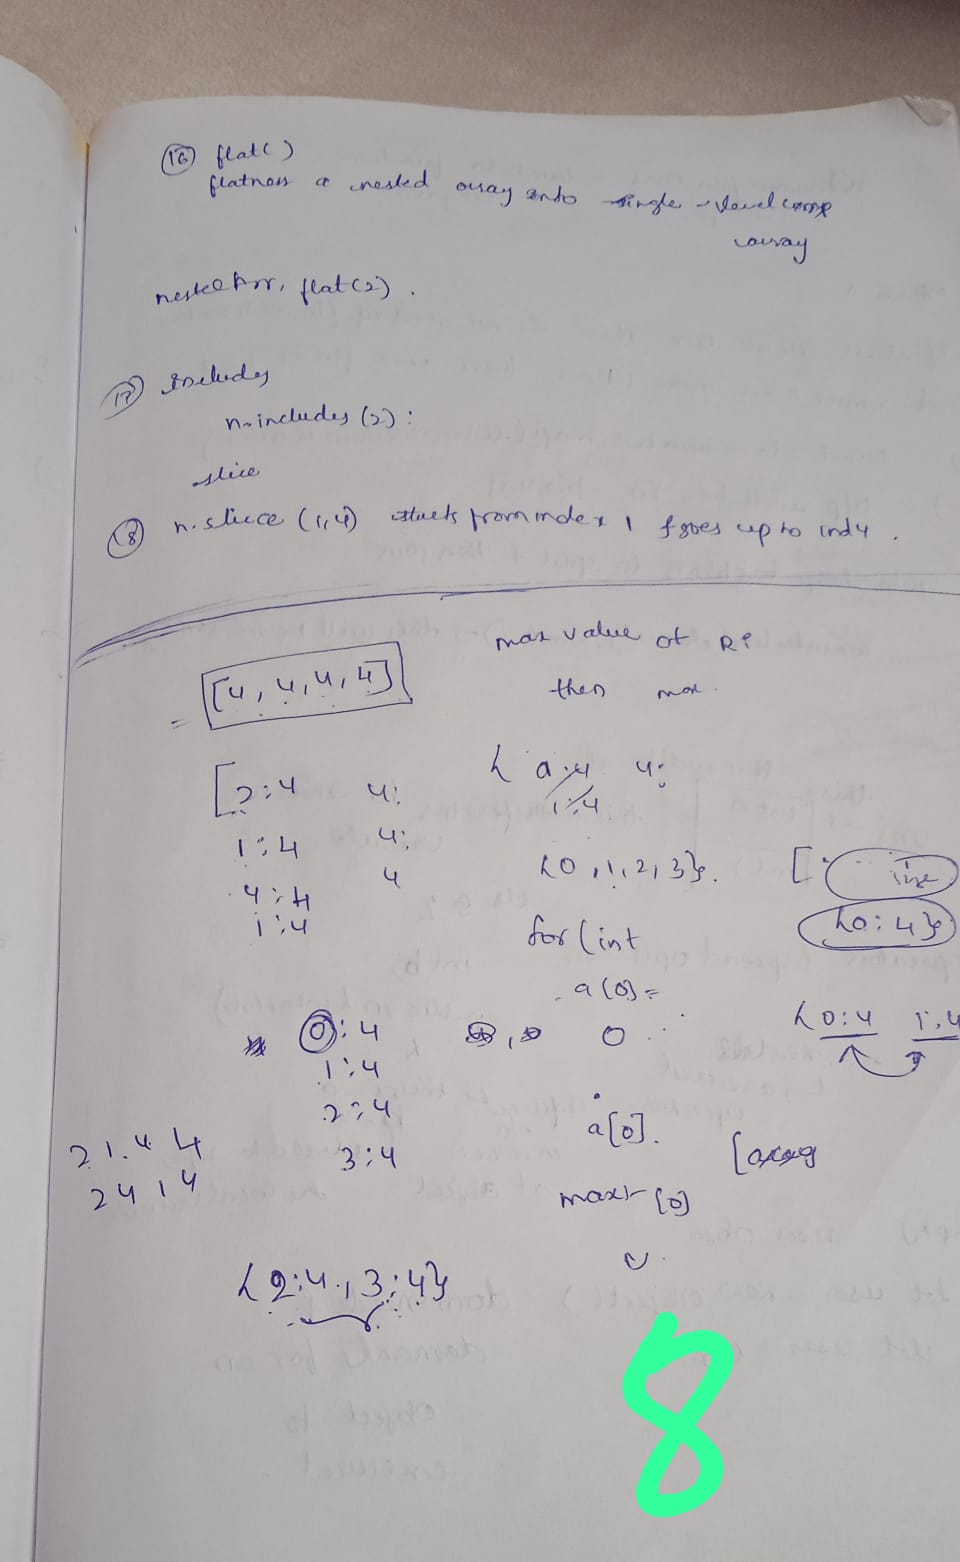 16 flat()
flatness a nested array into single-level comp
array
nestedArr, flat(2).
17 includes
n.includes (2):
slice
18 n.sliece (1,4) starts from index 1 & goes up to ind 4.
max value of
then max.
= [4, 4, 4, 4]
[2:4 4:
1:4 4:
4:4 4
1:4
{ a:4 4:
1:4
{0, 1, 2, 3}.
[: size
{0:4}
for (int
a(0) =
0:4 0
1:4
2:4
3:4
{0:4 1:4
a[0].
[array
2 1.4 4
2 4 1 4
max [0]
{2:4, 3:4}
8